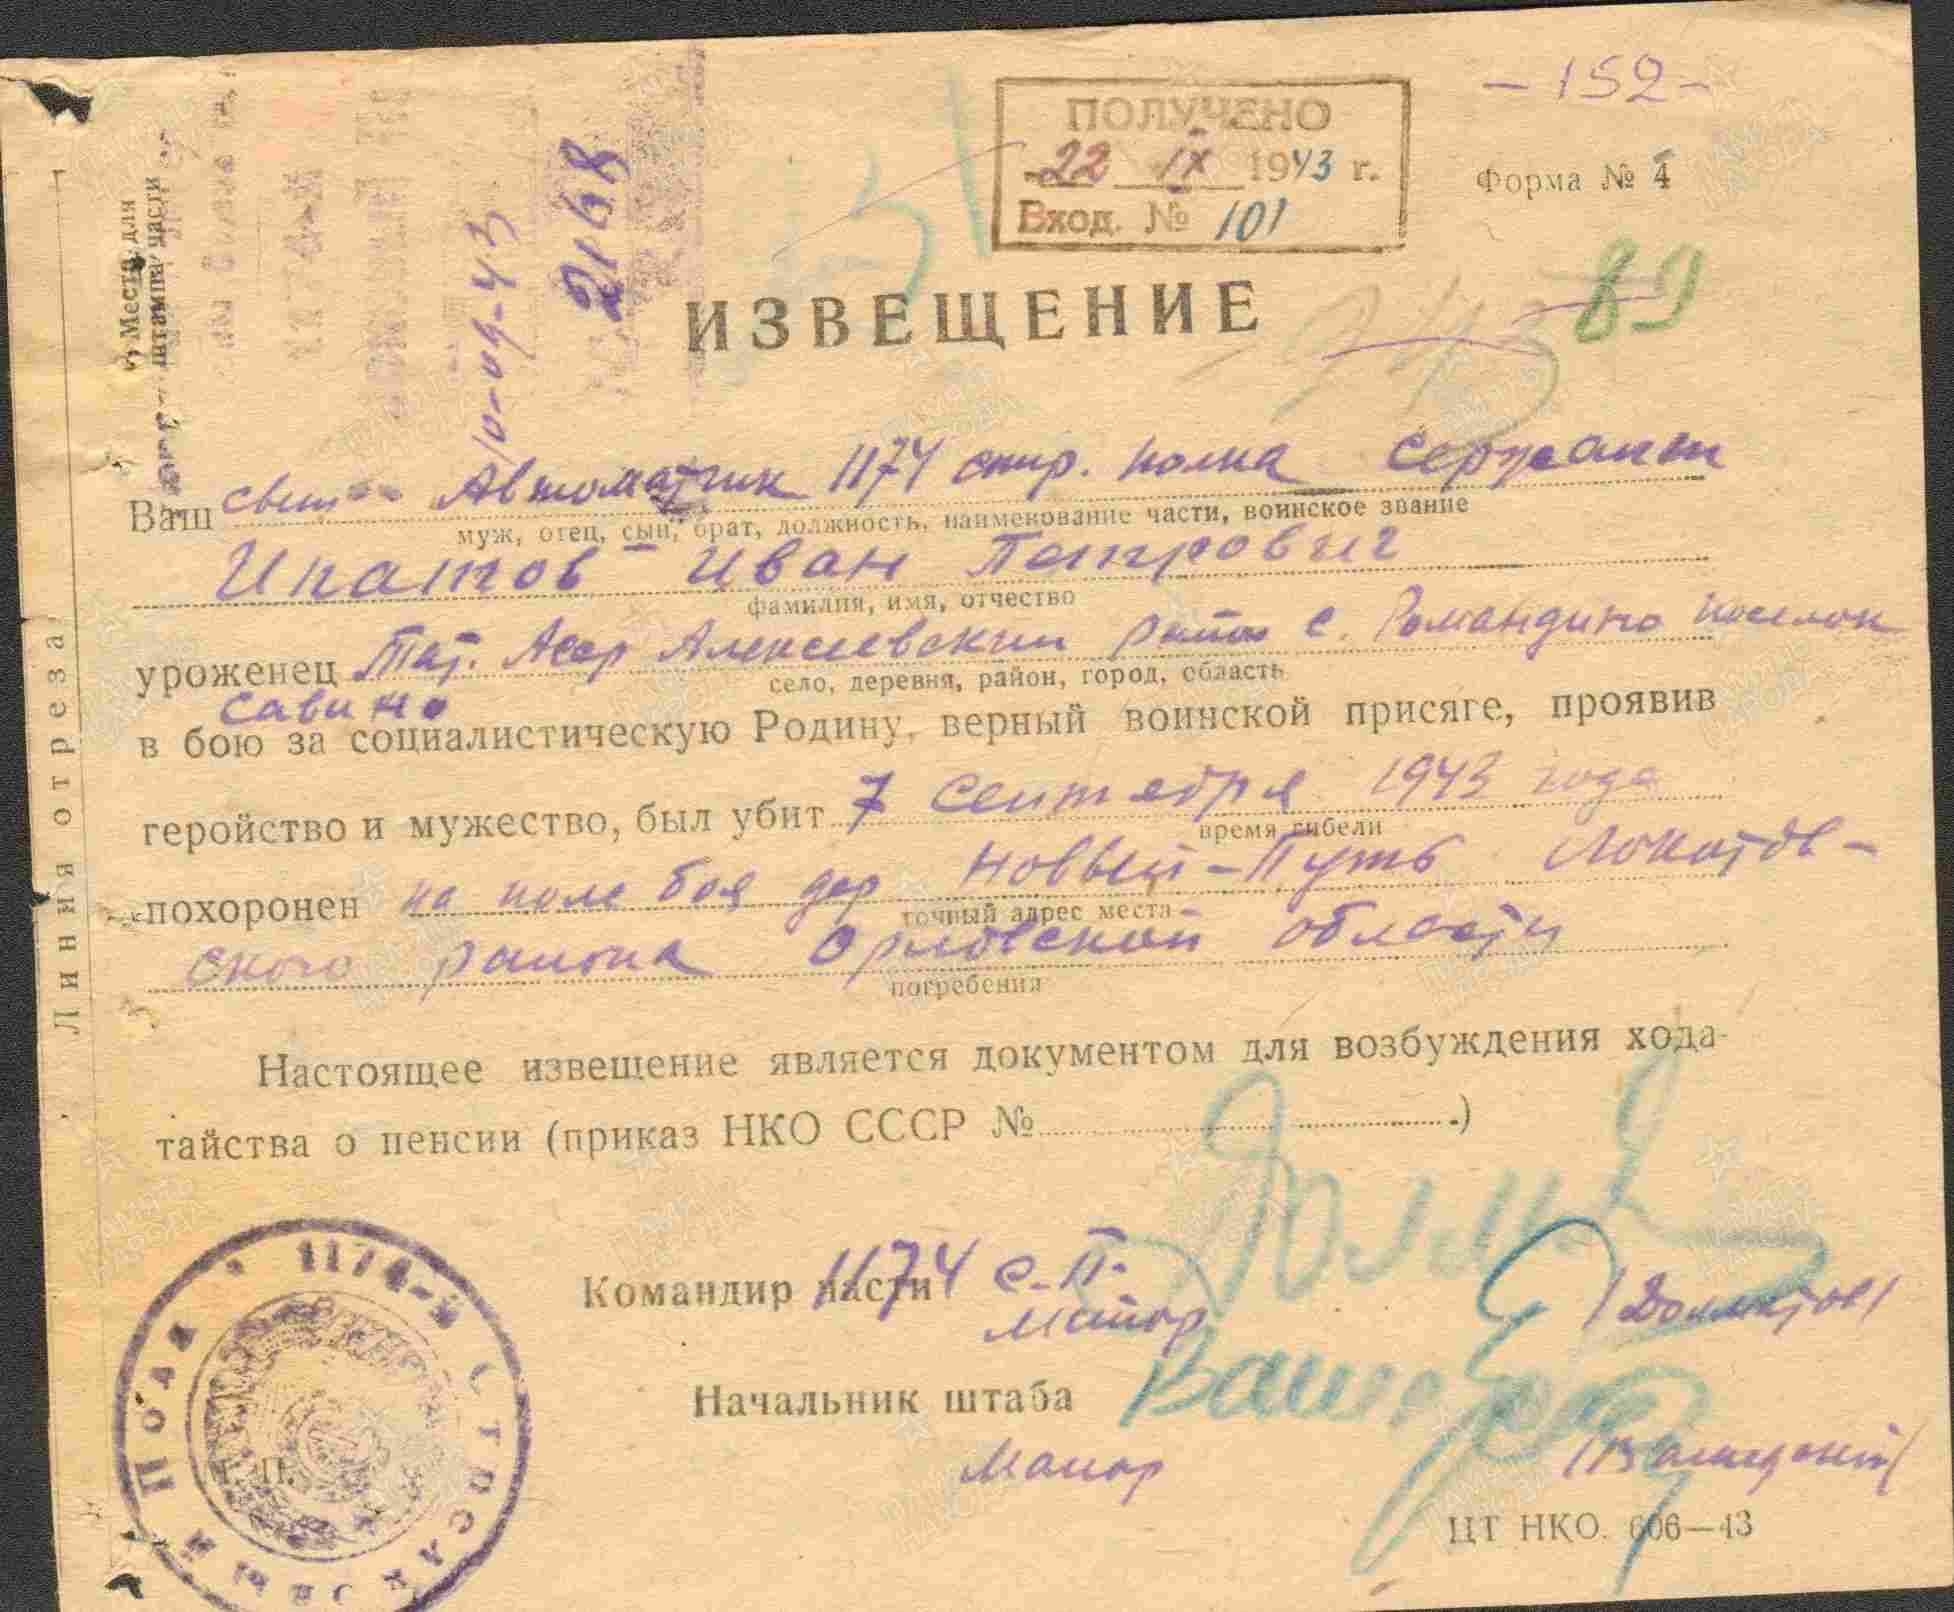 - 152 -
ПОЛУЧЕНО
22 IX 1943 г.
Вход. № 101
Форма № 4
Место для
штампа части
10-09-43
2168
89
ИЗВЕЩЕНИЕ
Ваш сын Автоматчик 1174 стр. полка Сержант
муж, отец, сын, брат, должность, наименование части, воинское звание
Ипатов Иван Петрович
фамилия, имя, отчество
уроженец Тат. Асср Алексеевский район с. Романдино поселок
село, деревня, район, город, область
Савино
в бою за социалистическую Родину, верный воинской присяге, проявив
геройство и мужество, был убит 7 Сентября 1943 года
время гибели
похоронен на поле боя дер Новый-Путь Локотов-
точный адрес места
ского района Орловской области
погребения
Настоящее извещение является документом для возбуждения хода-
тайства о пенсии (приказ НКО СССР № .)
Командир части 1174 с.п.
Майор
Начальник штаба
Майор
ЦТ НКО. 606—43
Линия отреза
1174-й СТРЕЛКОВЫЙ ПОЛК